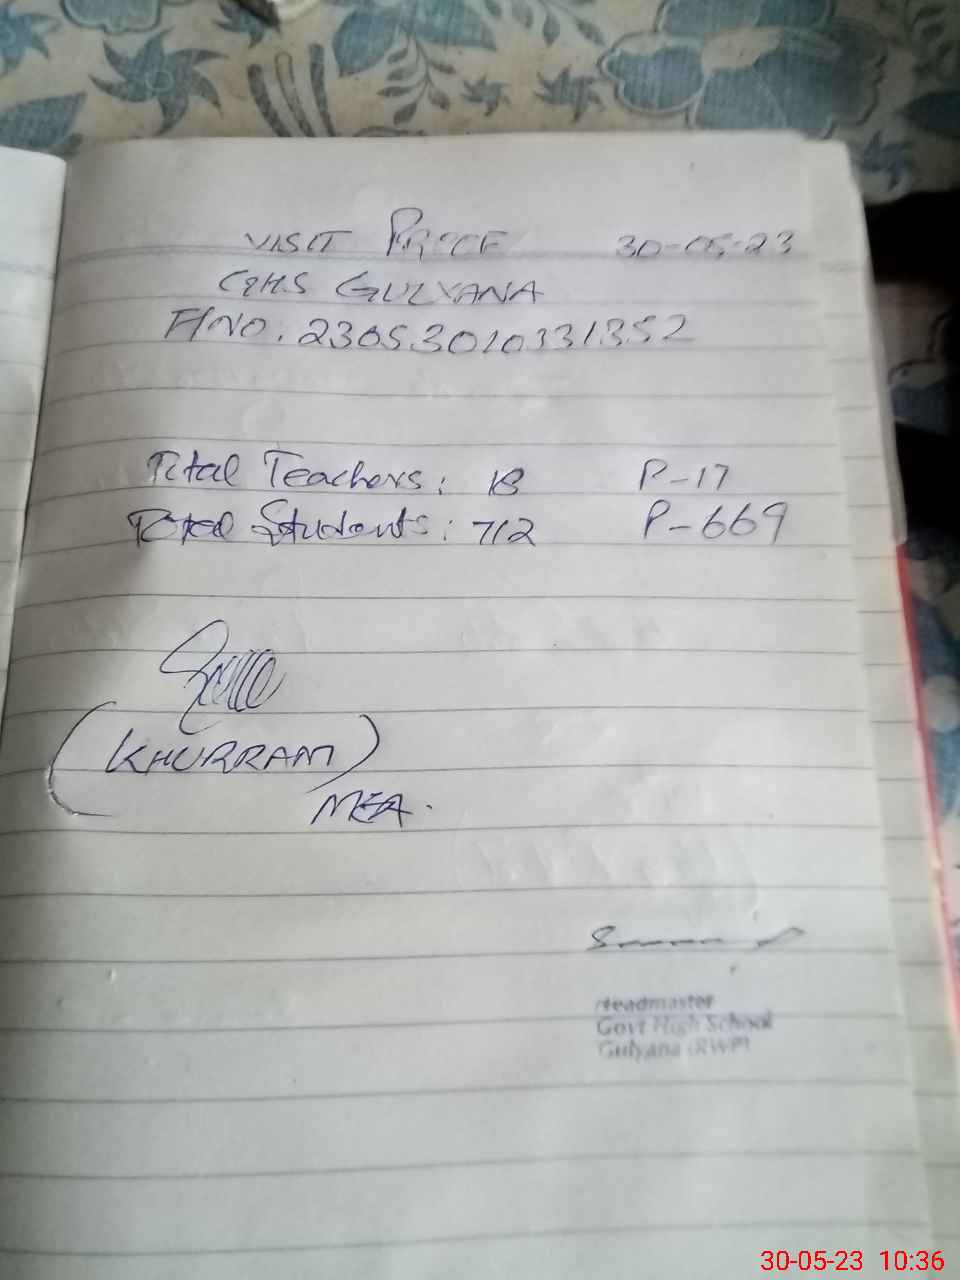 VISIT PROOF 30-05-23
GHS GULYANA
F/NO. 23053010331352
Total Teachers: 18 P-17
Total Students: 712 P-669
(KHURRAM)
MEA.
Headmaster
Govt High School
Gulyana (RWP)
30-05-23 10:36